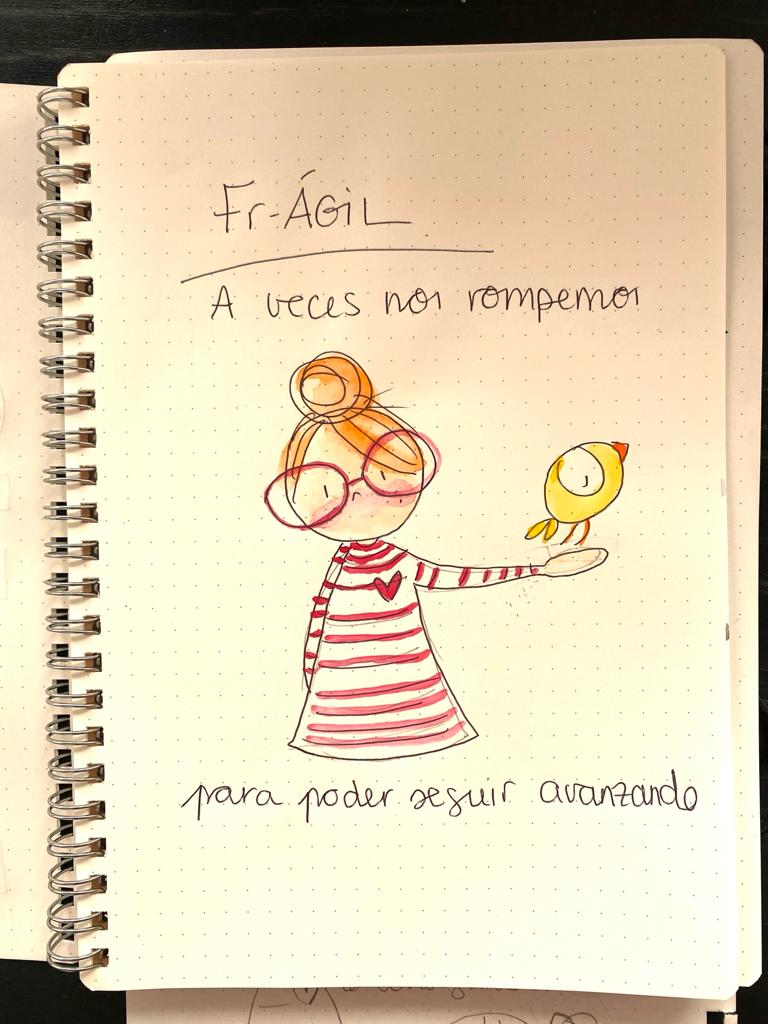 Fr-ÁGIL
A veces nos rompemos
para poder seguir avanzando